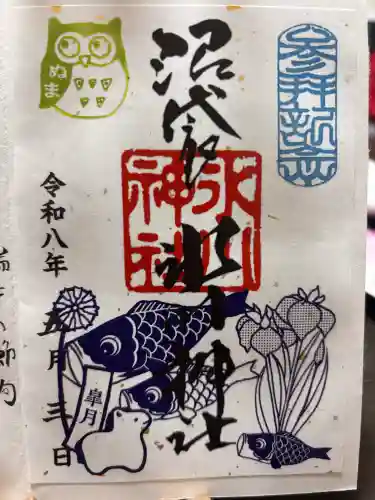 参拝記念
沼袋氷川神社
氷川
神社
ぬま
令和八年五月三日
皐月